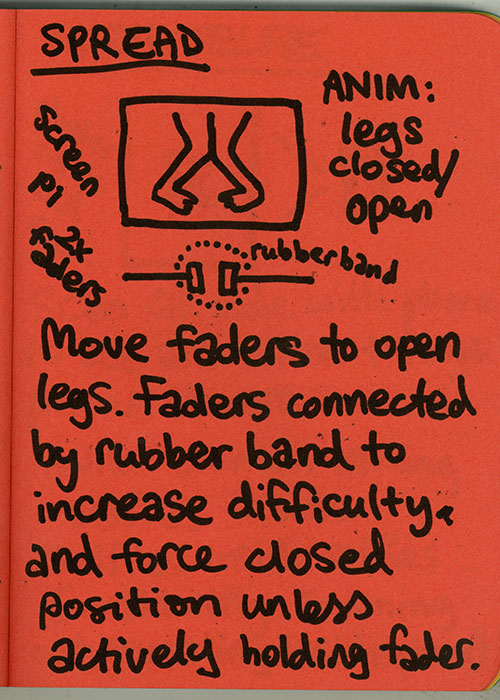 SPREAD
ANIM:
legs
closed/
open
screen
pi
2x
faders
rubberband
Move faders to open
legs. Faders connected
by rubber band to
increase difficulty,
and force closed
position unless
actively holding fader.